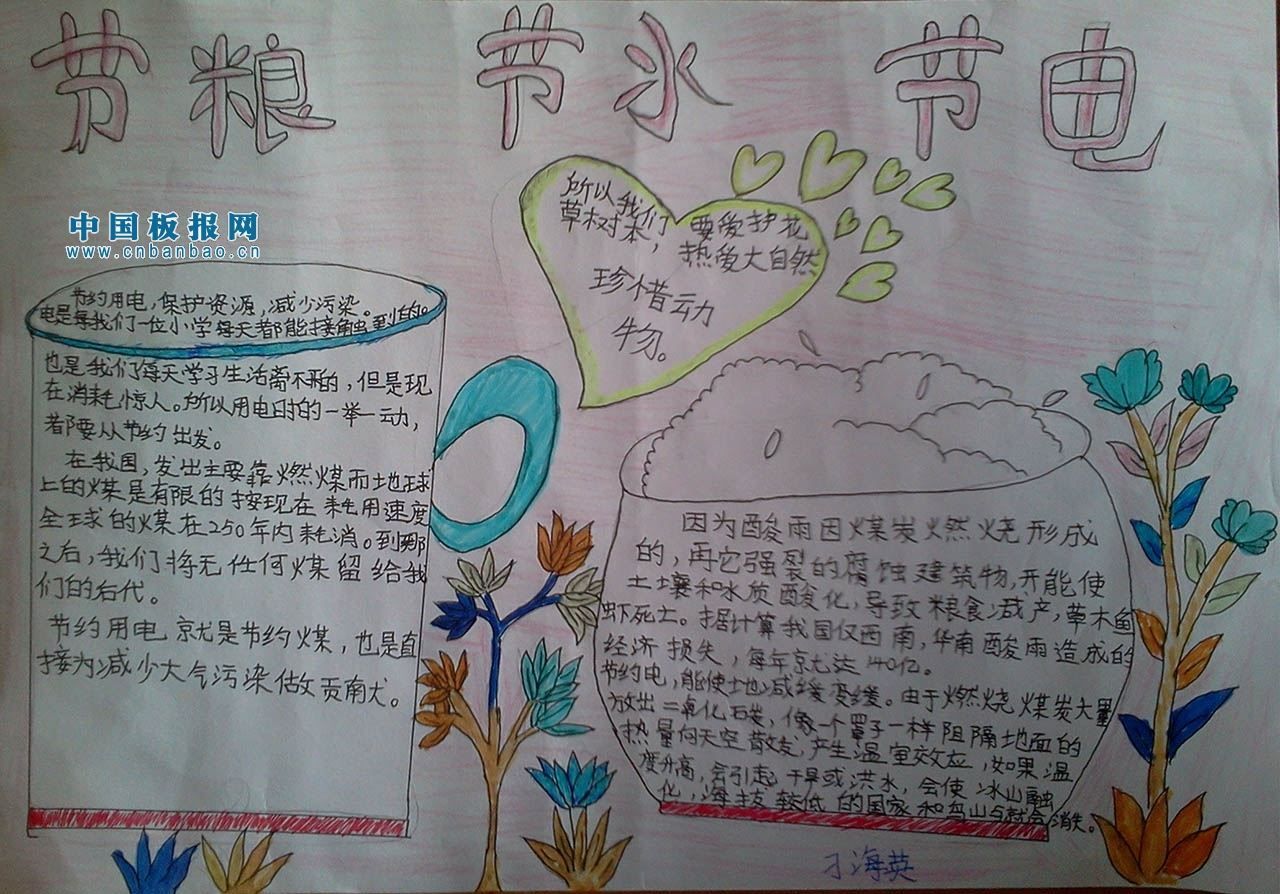 节粮 节水 节电
中国板报网
www.cnbanbao.cn
所以我们要爱护花
草树木，热爱大自然
珍惜动
物。
节约用电，保护资源，减少污染。
电是每我们一位小学每天都能接触到的。
也是我们每天学习生活离不开的，但是现
在消耗惊人。所以用电时的一举一动，
都要从节约出发。
在我国，发出主要靠燃煤而地球
上的煤是有限的按现在耗用速度
全球的煤在250年内耗消。到那
之后，我们将无任何煤留给我
们的后代。
节约用电就是节约煤，也是直
接为减少大气污染做贡献。
因为酸雨因煤炭火燃烧形成
的，再它强裂的腐蚀建筑物，开能使
土壤和水质酸化，导致粮食减产，草木鱼
虾死亡。据计算我国仅西南，华南酸雨造成的
经济损失，每年就达140亿。
节约电，能使土地减缓变缓。由于燃烧煤炭大量
放出二氧化碳，像一个罩子一样阻隔地面的
热量向天空散发，产生温室效应，如果温
度升高，会引起干旱或洪水，会使冰山融
化，海拔较低的国家和岛山与就会消失。
刁海英